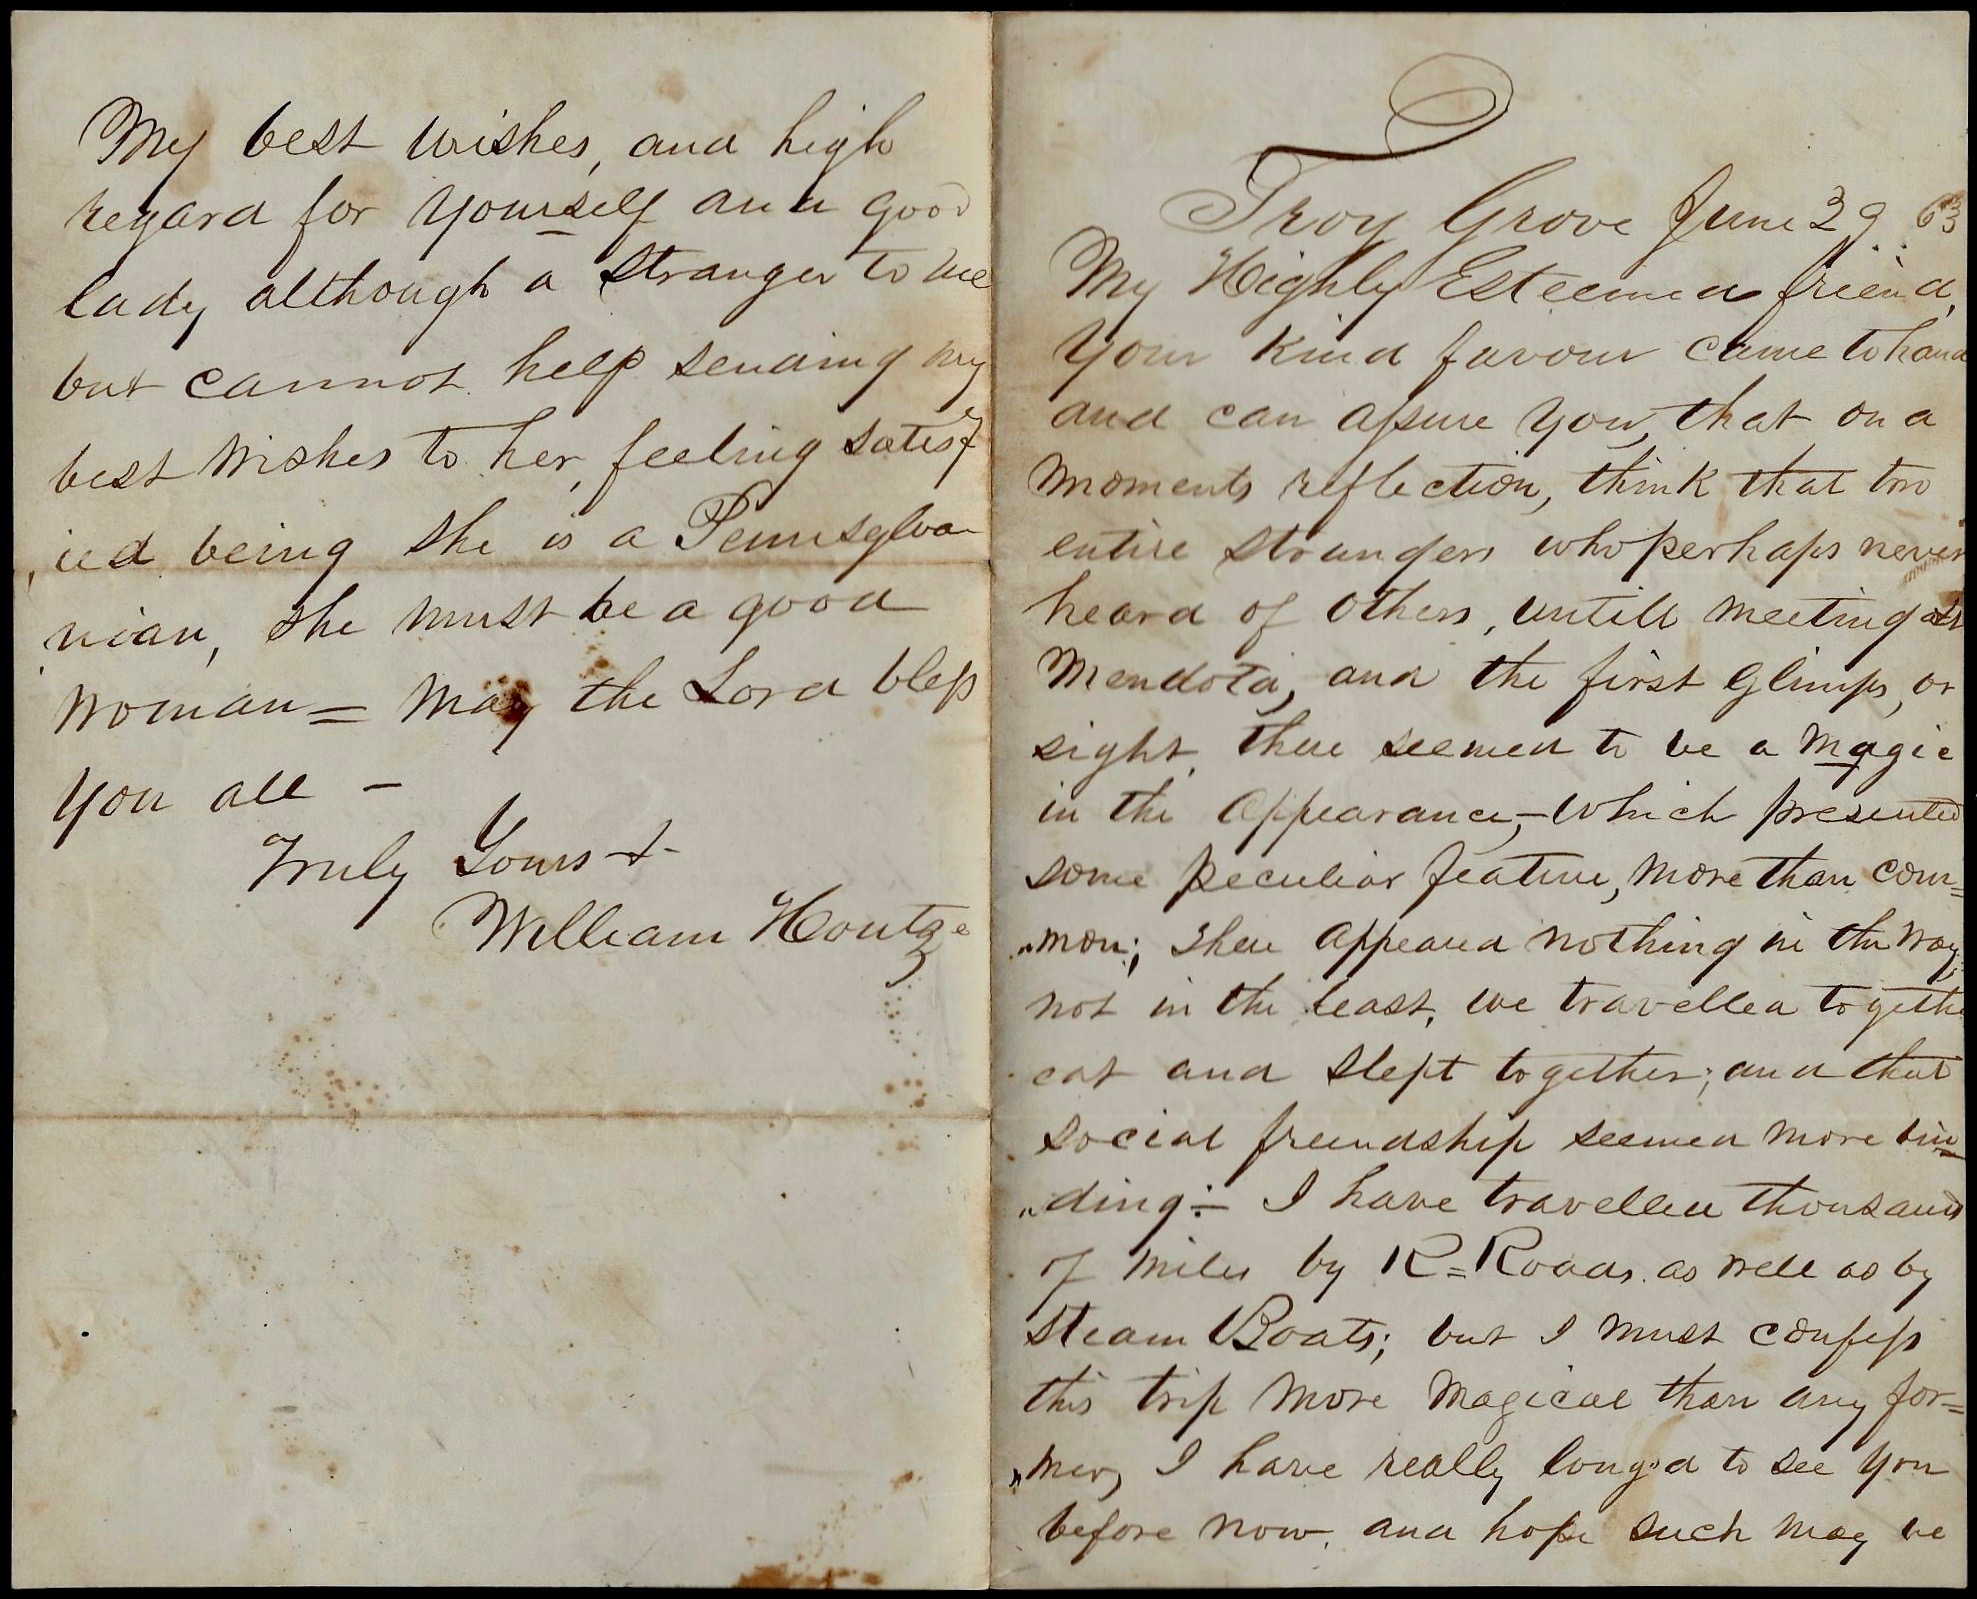 My best wishes, and high
regard for yourself and good
lady although a stranger to me
but cannot help sending my
best wishes to her, feeling satisf
,ied being she is a Pennsylva
nian, she must be a good
woman = May the Lord bless
you all –
Truly Yours +
William Houtz
Troy Grove June 29 63
My Highly Esteemed friend,
Your kind favour came to hand
and can assure you, that on a
moments reflection, think that two
entire strangers who perhaps never
heard of others, untill meeting at
Mendota, and the first Glimps, or
sight, there seemed to be a Magic
in the Appearance, – which presented
some peculiar feature, more than com=
„mon; There appeared nothing in the way,
not in the least, we travelled togethe
eat and slept together; and that
social freindship seemed more bin
„ding:– I have travelled thousands
of miles by R=Roads as well as by
steam Boats; but I must confess
this trip more magical than any for=
„mer, I have really longed to see you
before now, and hope such may be